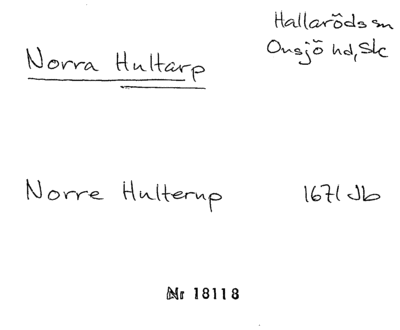 Hallaröds sn
Onsjö hd, Sk
Norra Hultarp
Norre Hulterup 1671 Jb
Nr 18118